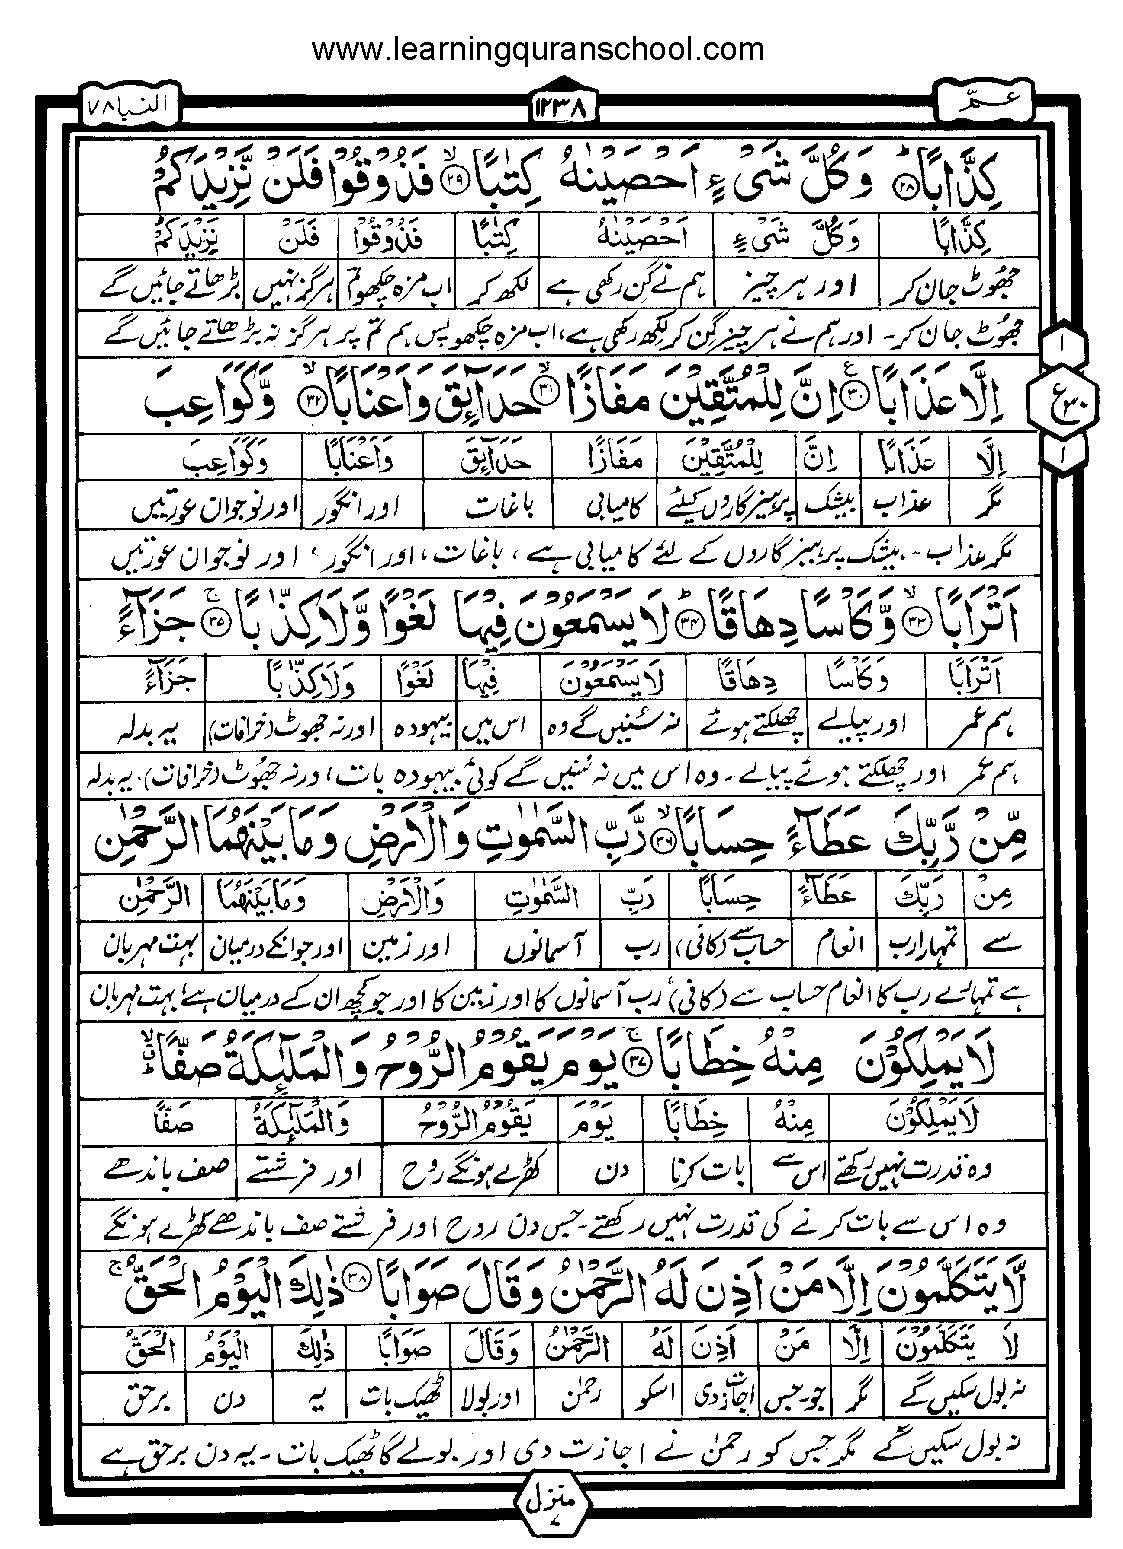 www.learningquranschool.com
عمّ ١٢٣٨ النبا ٧٨
كِذَّابًا ﴿٢٨﴾ وَكُلَّ شَیْءٍ اَحْصَیْنٰهُ كِتٰبًا ﴿٢٩﴾ فَذُوْقُوْا فَلَنْ نَّزِیْدَكُمْ
كِذَّابًا وَكُلَّ شَیْءٍ اَحْصَیْنٰهُ كِتٰبًا فَذُوْقُوْا فَلَنْ نَزِیْدَكُمْ
جھوٹ جان کر اور ہر چیز ہم نے گن رکھی ہے لکھ کر اب مزہ چکھو تم ہرگز نہیں بڑھاتے جائیں گے
جھوٹ جان کر۔ اور ہم نے ہر چیز گن کر لکھ رکھی ہے، اب مزہ چکھو پس ہم تم پر ہرگز نہ بڑھاتے جائیں گے
١
ع ٣٠
١
اِلَّا عَذَابًا ﴿٣٠﴾ اِنَّ لِلْمُتَّقِیْنَ مَفَازًا ﴿٣١﴾ حَدَآئِقَ وَاَعْنَابًا ﴿٣٢﴾ وَّكَوَاعِبَ
اِلَّا عَذَابًا اِنَّ لِلْمُتَّقِیْنَ مَفَازًا حَدَآئِقَ وَاَعْنَابًا وَكَوَاعِبَ
مگر عذاب بیشک پرہیزگاروں کیلئے کامیابی باغات اور انگور اور نوجوان عورتیں
مگر عذاب۔ بیشک پرہیزگاروں کے لئے کامیابی ہے، باغات، اور انگور، اور نوجوان عورتیں
اَتْرَابًا ﴿٣٣﴾ وَّكَاْسًا دِهَاقًا ﴿٣٤﴾ لَا یَسْمَعُوْنَ فِیْهَا لَغْوًا وَّلَا كِذّٰبًا ﴿٣٥﴾ جَزَآءً
اَتْرَابًا وَكَاْسًا دِهَاقًا لَا یَسْمَعُوْنَ فِیْهَا لَغْوًا وَلَا كِذّٰبًا جَزَآءً
ہم عمر اور پیالے چھلکتے ہوئے نہ سُنیں گے وہ اس میں بیہودہ اور نہ جھوٹ (خرافات) یہ بدلہ
ہم عمر اور چھلکتے ہوئے پیالے۔ وہ اس میں نہ سُنیں گے کوئی بیہودہ بات، اور نہ جھوٹ (خرافات)، یہ بدلہ
مِّنْ رَّبِّكَ عَطَآءً حِسَابًا ﴿٣٦﴾ رَّبِّ السَّمٰوٰتِ وَالْاَرْضِ وَمَا بَیْنَهُمَا الرَّحْمٰنِ
مِنْ رَبِّكَ عَطَآءً حِسَابًا رَبِّ السَّمٰوٰتِ وَالْاَرْضِ وَمَا بَیْنَهُمَا الرَّحْمٰنِ
سے تمہارا رب انعام حساب سے (کافی) رب آسمانوں اور زمین اور جو انکے درمیان بہت مہربان
ہے تمہارے رب کا انعام حساب سے (کافی) رب آسمانوں کا اور زمین کا اور جو کچھ ان کے درمیان ہے، بہت مہربان
لَا یَمْلِكُوْنَ مِنْهُ خِطَابًا ﴿٣٧﴾ یَوْمَ یَقُوْمُ الرُّوْحُ وَالْمَلٰٓئِكَةُ صَفًّا
لَا یَمْلِكُوْنَ مِنْهُ خِطَابًا یَوْمَ یَقُوْمُ الرُّوْحُ وَالْمَلٰٓئِكَةُ صَفًّا
وہ قدرت نہیں رکھتے اس سے بات کرنا دن کھڑے ہونگے روح اور فرشتے صف باندھے
وہ اس سے بات کرنے کی قدرت نہیں رکھتے۔ جس دن روح اور فرشتے صف باندھے کھڑے ہونگے
لَّا یَتَكَلَّمُوْنَ اِلَّا مَنْ اَذِنَ لَهُ الرَّحْمٰنُ وَقَالَ صَوَابًا ﴿٣٨﴾ ذٰلِكَ الْیَوْمُ الْحَقُّ
لَا یَتَكَلَّمُوْنَ اِلَّا مَنْ اَذِنَ لَهُ الرَّحْمٰنُ وَقَالَ صَوَابًا ذٰلِكَ الْیَوْمُ الْحَقُّ
نہ بول سکیں گے مگر جو۔جس اجازت دی اسکو رحمٰن اور بولا ٹھیک بات یہ دن برحق
نہ بول سکیں گے مگر جس کو رحمٰن نے اجازت دی اور بولے گا ٹھیک بات۔ یہ دن برحق ہے
منزل ٧